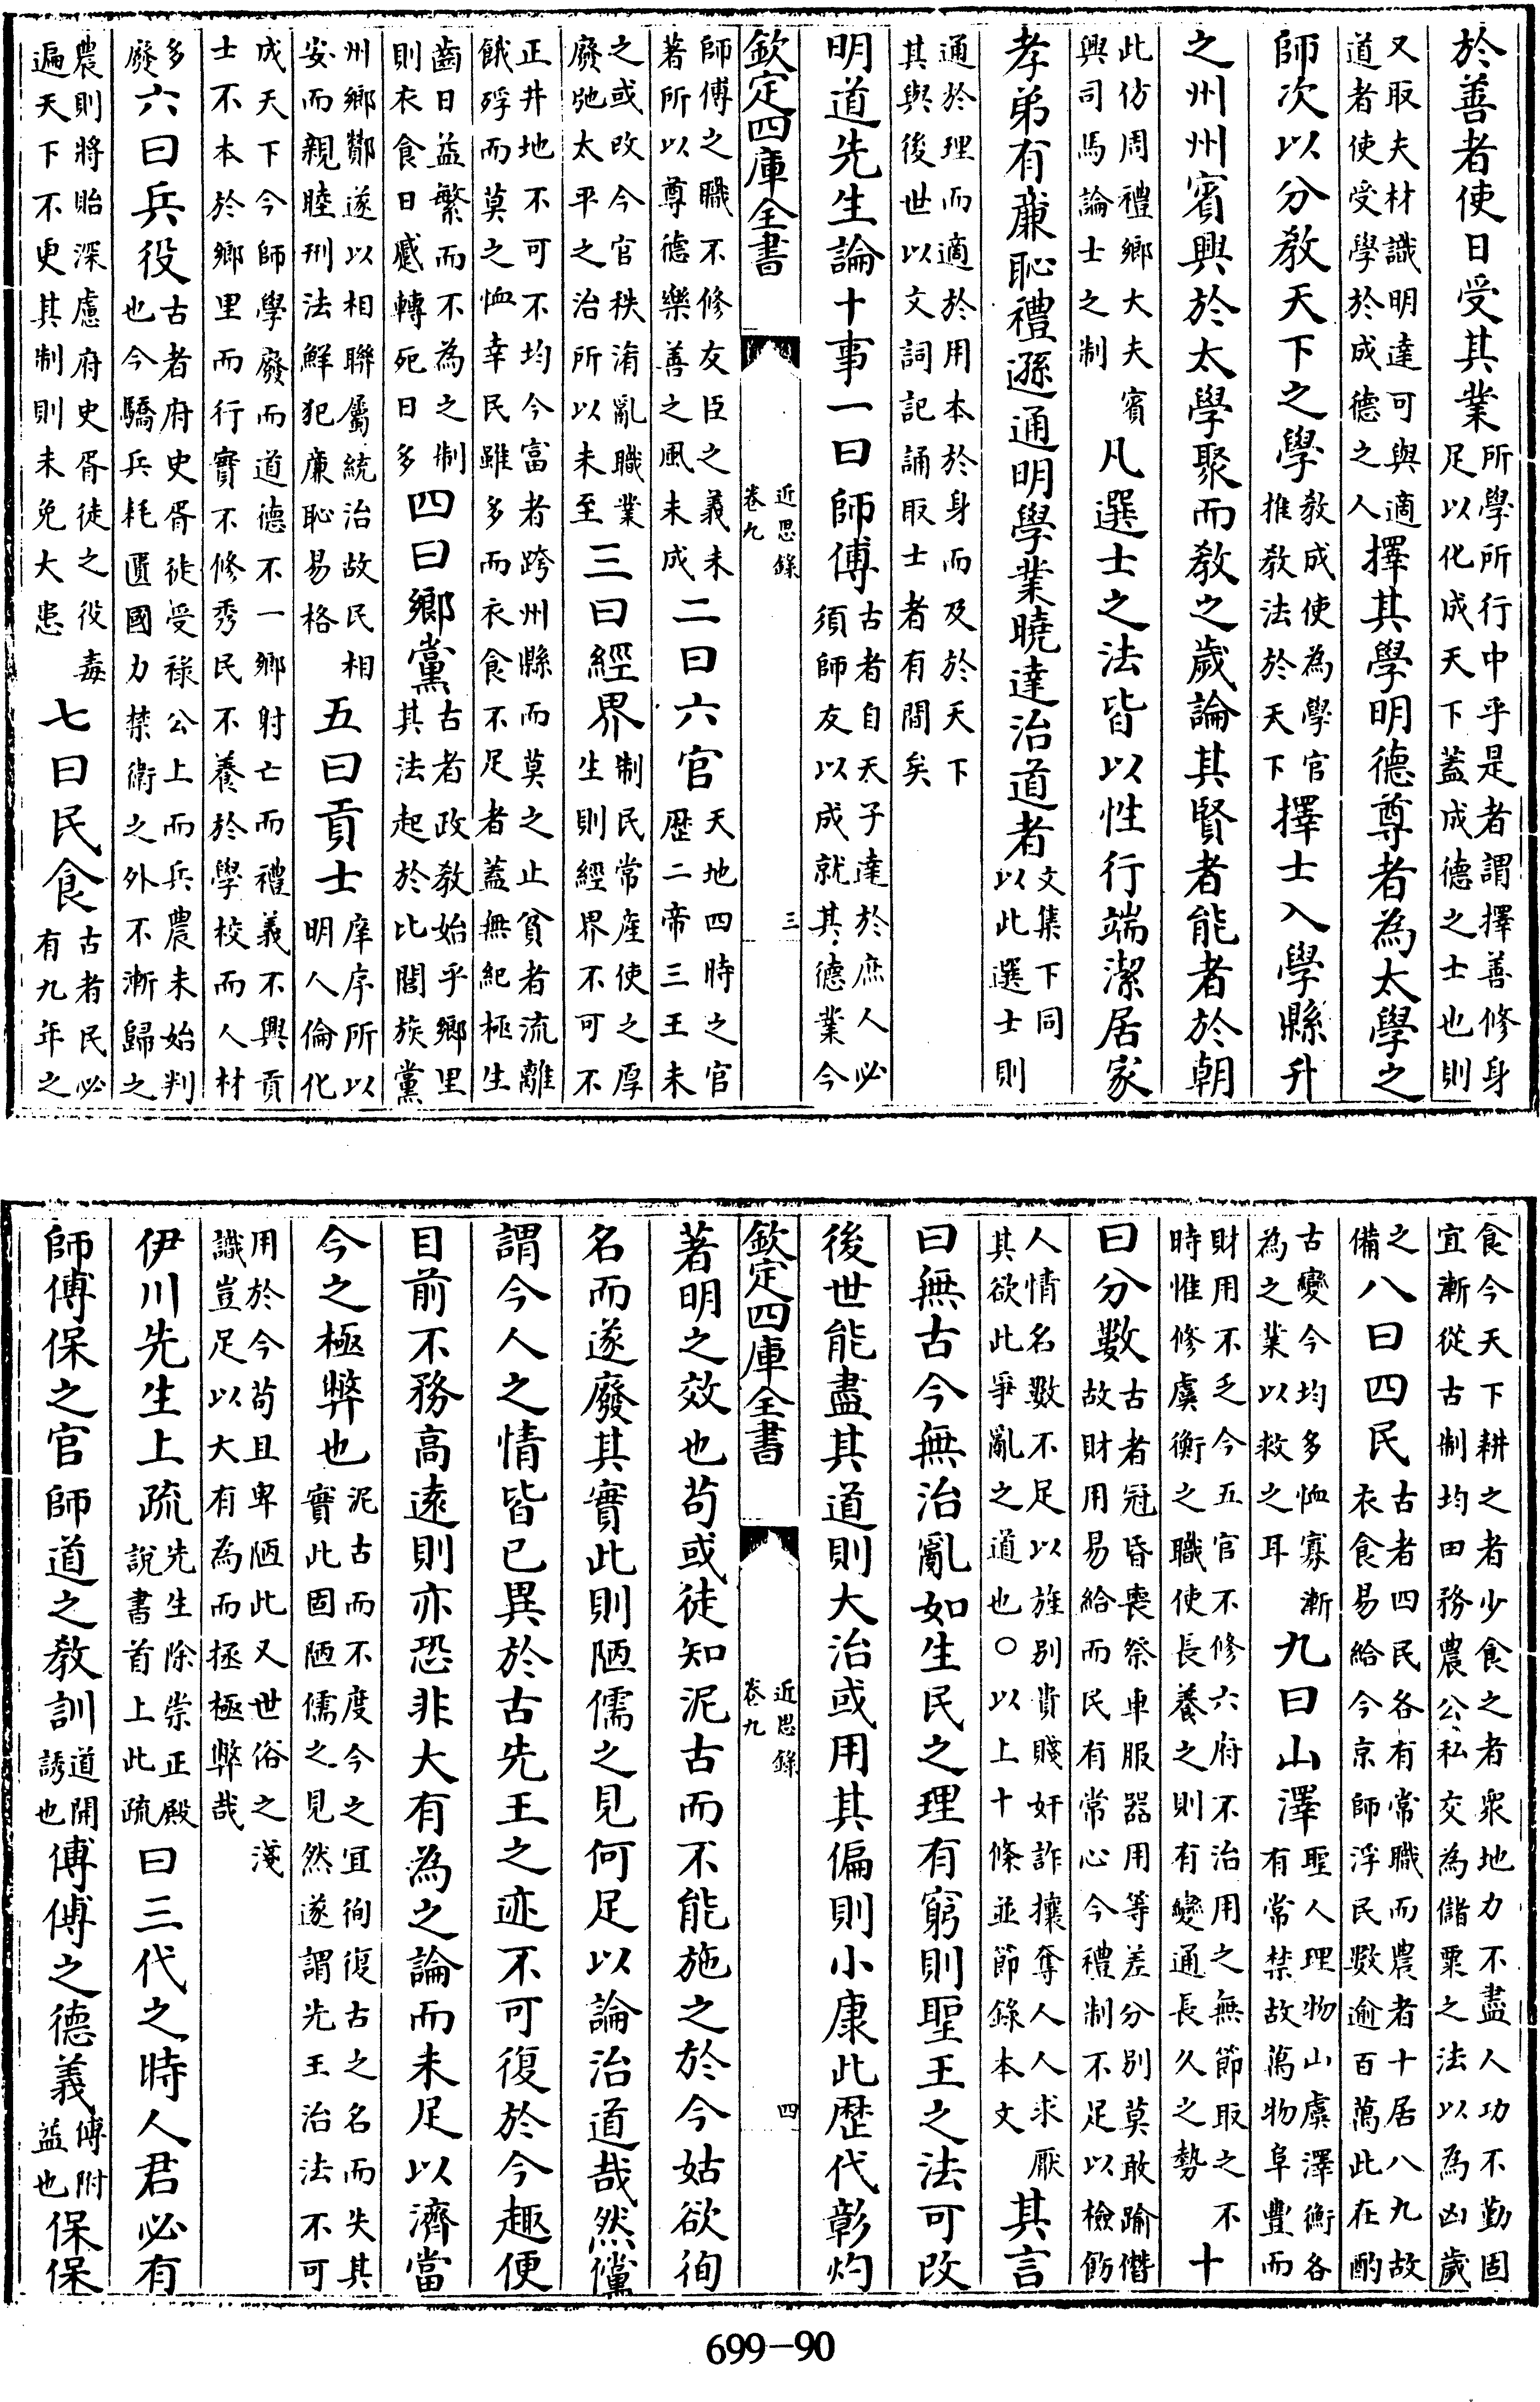 於善者使日受其業所學所行中乎是者謂擇善修身足以化成天下蓋成德之士也則
又取夫材識明達可與適道者使受學於成德之人擇其學明德尊者為太學之
師次以分教天下之學教成使為學官推教法於天下擇士入學縣升
之州州賓興於太學聚而教之歲論其賢者能者於朝
此仿周禮鄉大夫賓興司馬論士之制凡選士之法皆以性行端潔居家
孝弟有廉恥禮遜通明學業曉達治道者文集下同以此選士則
通於理而適於用本於身而及於天下其與後世以文詞記誦取士者有間矣
明道先生論十事一曰師傅古者自天子達於庶人必須師友以成就其德業今
欽定四庫全書 近思錄 卷九 三
師傅之職不修友臣之義未著所以尊德樂善之風未成二曰六官天地四時之官歴二帝三王未
之或改今官秩淆亂職業廢弛太平之治所以未至三曰經界制民常產使之厚生則經界不可不
正井地不可不均今富者跨州縣而莫之止貧者流離餓殍而莫之恤幸民雖多而衣食不足者蓋無紀極生
齒日益繁而不為之制則衣食日蹙轉死日多四曰鄉黨古者政教始乎鄉里其法起於比閭族黨
州鄉酇遂以相聯屬統治故民相安而親睦刑法鮮犯廉恥易格五曰貢士庠序所以明人倫化
成天下今師學廢而道德不一鄉射亡而禮義不興貢士不本於鄉里而行實不修秀民不養於學校而人材
多廢六曰兵役古者府史胥徒受祿公上而兵農未始判也今驕兵耗匱國力禁衛之外不漸歸之
農則將貽深慮府史胥徒之役毒遍天下不更其制則未免大患七曰民食古者民必有九年之
食今天下耕之者少食之者衆地力不盡人功不勤固宜漸從古制均田務農公私交為儲粟之法以為凶歲
之備八曰四民古者四民各有常職而農者十居八九故衣食易給今京師浮民數逾百萬此在酌
古變今均多恤寡漸為之業以救之耳九曰山澤聖人理物山虞澤衡各有常禁故萬物阜豐而
財用不乏今五官不修六府不治用之無節取之不時惟修虞衡之職使長養之則有變通長久之勢十
曰分數古者冠昏喪祭車服器用等差分別莫敢踰僭故財用易給而民有常心今禮制不足以檢飭
人情名數不足以旌別貴賤奸詐攘奪人人求厭其欲此爭亂之道也○以上十條並節錄本文其言
曰無古今無治亂如生民之理有窮則聖王之法可改
後世能盡其道則大治或用其偏則小康此歴代彰灼
欽定四庫全書 近思錄 卷九 四
著明之效也苟或徒知泥古而不能施之於今姑欲徇
名而遂廢其實此則陋儒之見何足以論治道哉然儻
謂今人之情皆已異於古先王之迹不可復於今趣便
目前不務高遠則亦恐非大有為之論而未足以濟當
今之極弊也泥古而不度今之宜徇復古之名而失其實此固陋儒之見然遂謂先王治法不可
用於今苟且卑陋此又世俗之淺識豈足以大有為而拯極弊哉
伊川先生上疏先生除崇正殿說書首上此疏曰三代之時人君必有
師傅保之官師道之教訓道開誘也傅傅之德義傅附益也保保
699-90